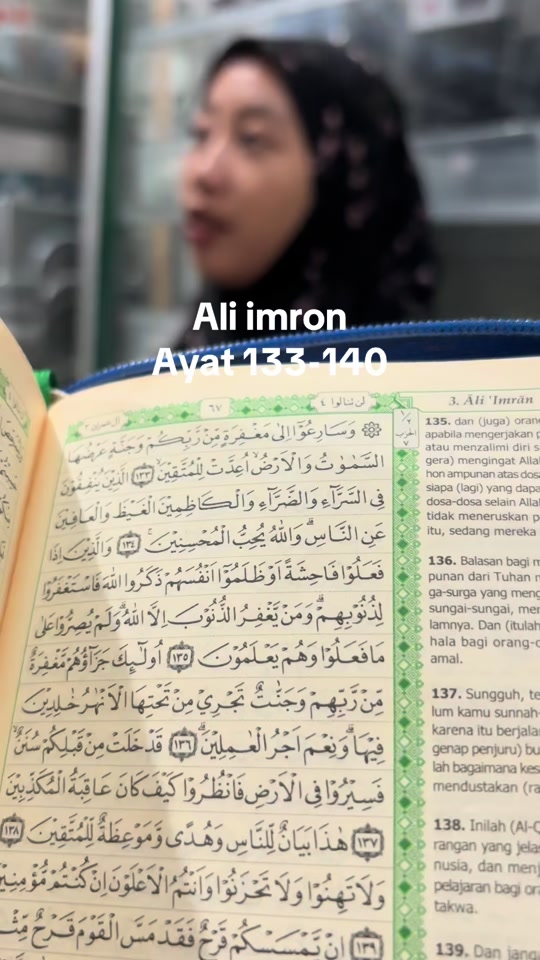 Ali imron
Ayat 133-140
لن تنالوا ٤
٦٧
3. Āli 'Imrān
وَسَارِعُوْٓا اِلٰى مَغْفِرَةٍ مِّنْ رَّبِّكُمْ وَجَنَّةٍ عَرْضُهَا
السَّمٰوٰتُ وَالْاَرْضُۙ اُعِدَّتْ لِلْمُتَّقِيْنَۙ ١٣٣ الَّذِيْنَ يُنْفِقُوْنَ
فِى السَّرَّۤاءِ وَالضَّرَّۤاءِ وَالْكَاظِمِيْنَ الْغَيْظَ وَالْعَافِيْنَ
عَنِ النَّاسِۗ وَاللّٰهُ يُحِبُّ الْمُحْسِنِيْنَۚ ١٣٤ وَالَّذِيْنَ اِذَا
فَعَلُوْا فَاحِشَةً اَوْ ظَلَمُوْٓا اَنْفُسَهُمْ ذَكَرُوا اللّٰهَ فَاسْتَغْفَرُوْا
لِذُنُوْبِهِمْۗ وَمَنْ يَّغْفِرُ الذُّنُوْبَ اِلَّا اللّٰهُ ۗوَلَمْ يُصِرُّوْا عَلٰى
مَا فَعَلُوْا وَهُمْ يَعْلَمُوْنَ ١٣٥ اُولٰۤىِٕكَ جَزَاۤؤُهُمْ مَّغْفِرَةٌ
مِّنْ رَّبِّهِمْ وَجَنّٰتٌ تَجْرِيْ مِنْ تَحْتِهَا الْاَنْهٰرُ خٰلِدِيْنَ
فِيْهَاۗ وَنِعْمَ اَجْرُ الْعٰمِلِيْنَۗ ١٣٦ قَدْ خَلَتْ مِنْ قَبْلِكُمْ سُنَنٌۙ
فَسِيْرُوْا فِى الْاَرْضِ فَانْظُرُوْا كَيْفَ كَانَ عَاقِبَةُ الْمُكَذِّبِيْنَ
١٣٧ هٰذَا بَيَانٌ لِّلنَّاسِ وَهُدًى وَّمَوْعِظَةٌ لِّلْمُتَّقِيْنَ ١٣٨
وَلَا تَهِنُوْا وَلَا تَحْزَنُوْا وَاَنْتُمُ الْاَعْلَوْنَ اِنْ كُنْتُمْ مُّؤْمِنِيْنَ
١٣٩ اِنْ يَّمْسَسْكُمْ قَرْحٌ فَقَدْ مَسَّ الْقَوْمَ قَرْحٌ
135. dan (juga) orang
apabila mengerjakan
atau menzalimi diri
gera) mengingat
hon ampunan atas
siapa (lagi) yang
dosa-dosa selain
tidak meneruskan
itu, sedang mereka
136. Balasan bagi
punan dari Tuhan
ga-surga yang
sungai-sungai,
lamnya. Dan
hala bagi
amal.
137. Sungguh,
lum kamu sunnah-
karena itu
genap penjuru)
lah bagaimana
mendustakan
138. Inilah
rangan yang
nusia, dan
pelajaran bagi
takwa.
139. Dan